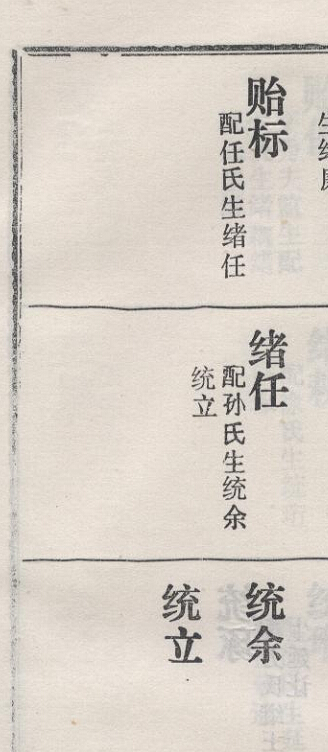 贻标
配任氏生绪任
绪任
配孙氏生统余
统立
统余
统立